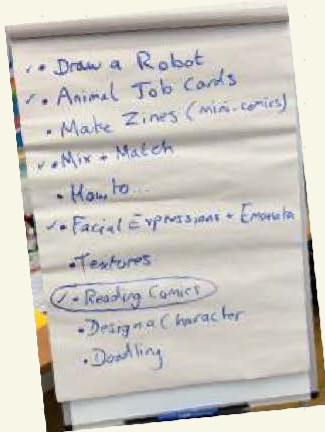 ✓ • Draw a Robot
✓ • Animal Job Cards
• Make Zines (mini-comics)
✓ • Mix + Match
• How to...
✓ • Facial Expressions + Emanata
• Textures
✓ • Reading Comics
• Design a Character
• Doodling